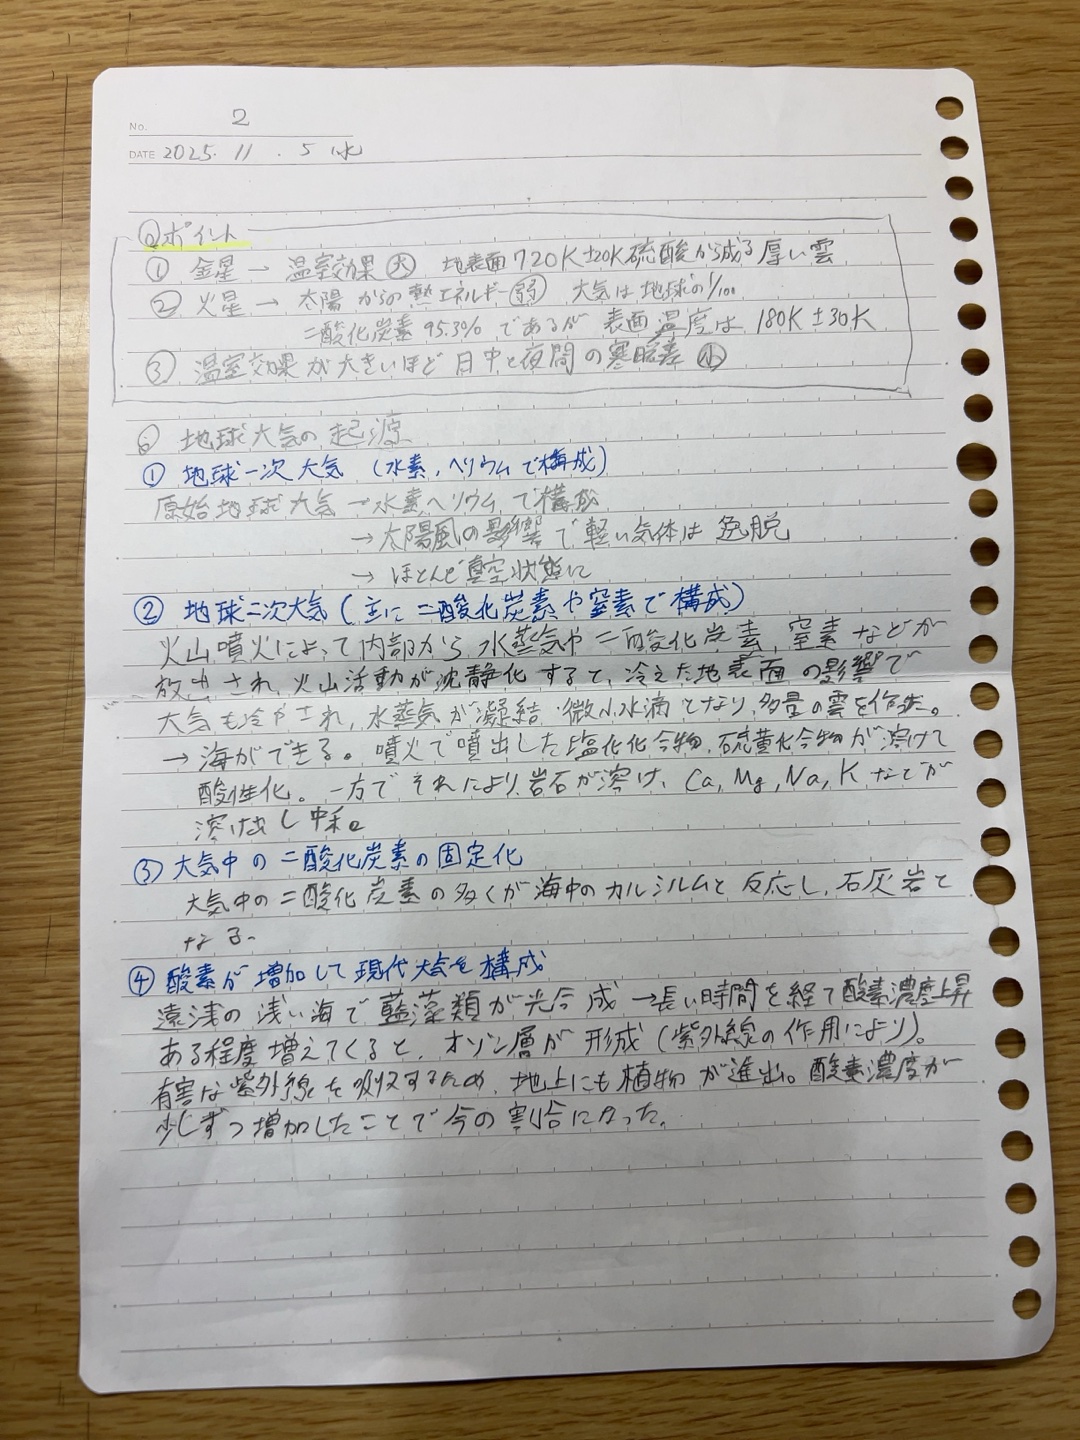 No. 2
DATE 2025. 11 . 5 水
◎ポイント
① 金星 → 温室効果(大) 地表面720K±20K 硫酸から成る厚い雲
② 火星 → 太陽からの熱エネルギー(弱) 大気は地球の1/100
二酸化炭素95.3%であるが表面温度は180K±30K
③ 温室効果が大きいほど日中と夜間の寒暖差(小)
地球大気の起源
① 地球一次大気(水素,ヘリウムで構成)
原始地球大気→水素ヘリウムで構成
→太陽風の影響で軽い気体は逸脱
→ほとんど真空状態に
② 地球二次大気(主に二酸化炭素や窒素で構成)
火山噴火によって内部から水蒸気や二酸化炭素,窒素などが
放出され,火山活動が沈静化すると,冷えた地表面の影響で
大気も冷やされ,水蒸気が凝結・微小水滴となり,多量の雲を作る。
→海ができる。噴火で噴出した塩化化合物,硫黄化合物が溶けて
酸性化。一方でそれにより岩石が溶け、Ca,Mg,Na,Kなどが
溶け出し中和。
③ 大気中の二酸化炭素の固定化
大気中の二酸化炭素の多くが海中のカルシルムと反応し,石灰岩と
なる。
④ 酸素が増加して現代大気を構成
遠浅の浅い海で藍藻類が光合成→長い時間を経て酸素濃度上昇
ある程度増えてくると,オゾン層が形成(紫外線の作用により)。
有害な紫外線を吸収するため,地上にも植物が進出。酸素濃度が
少しずつ増加したことで今の割合になった。